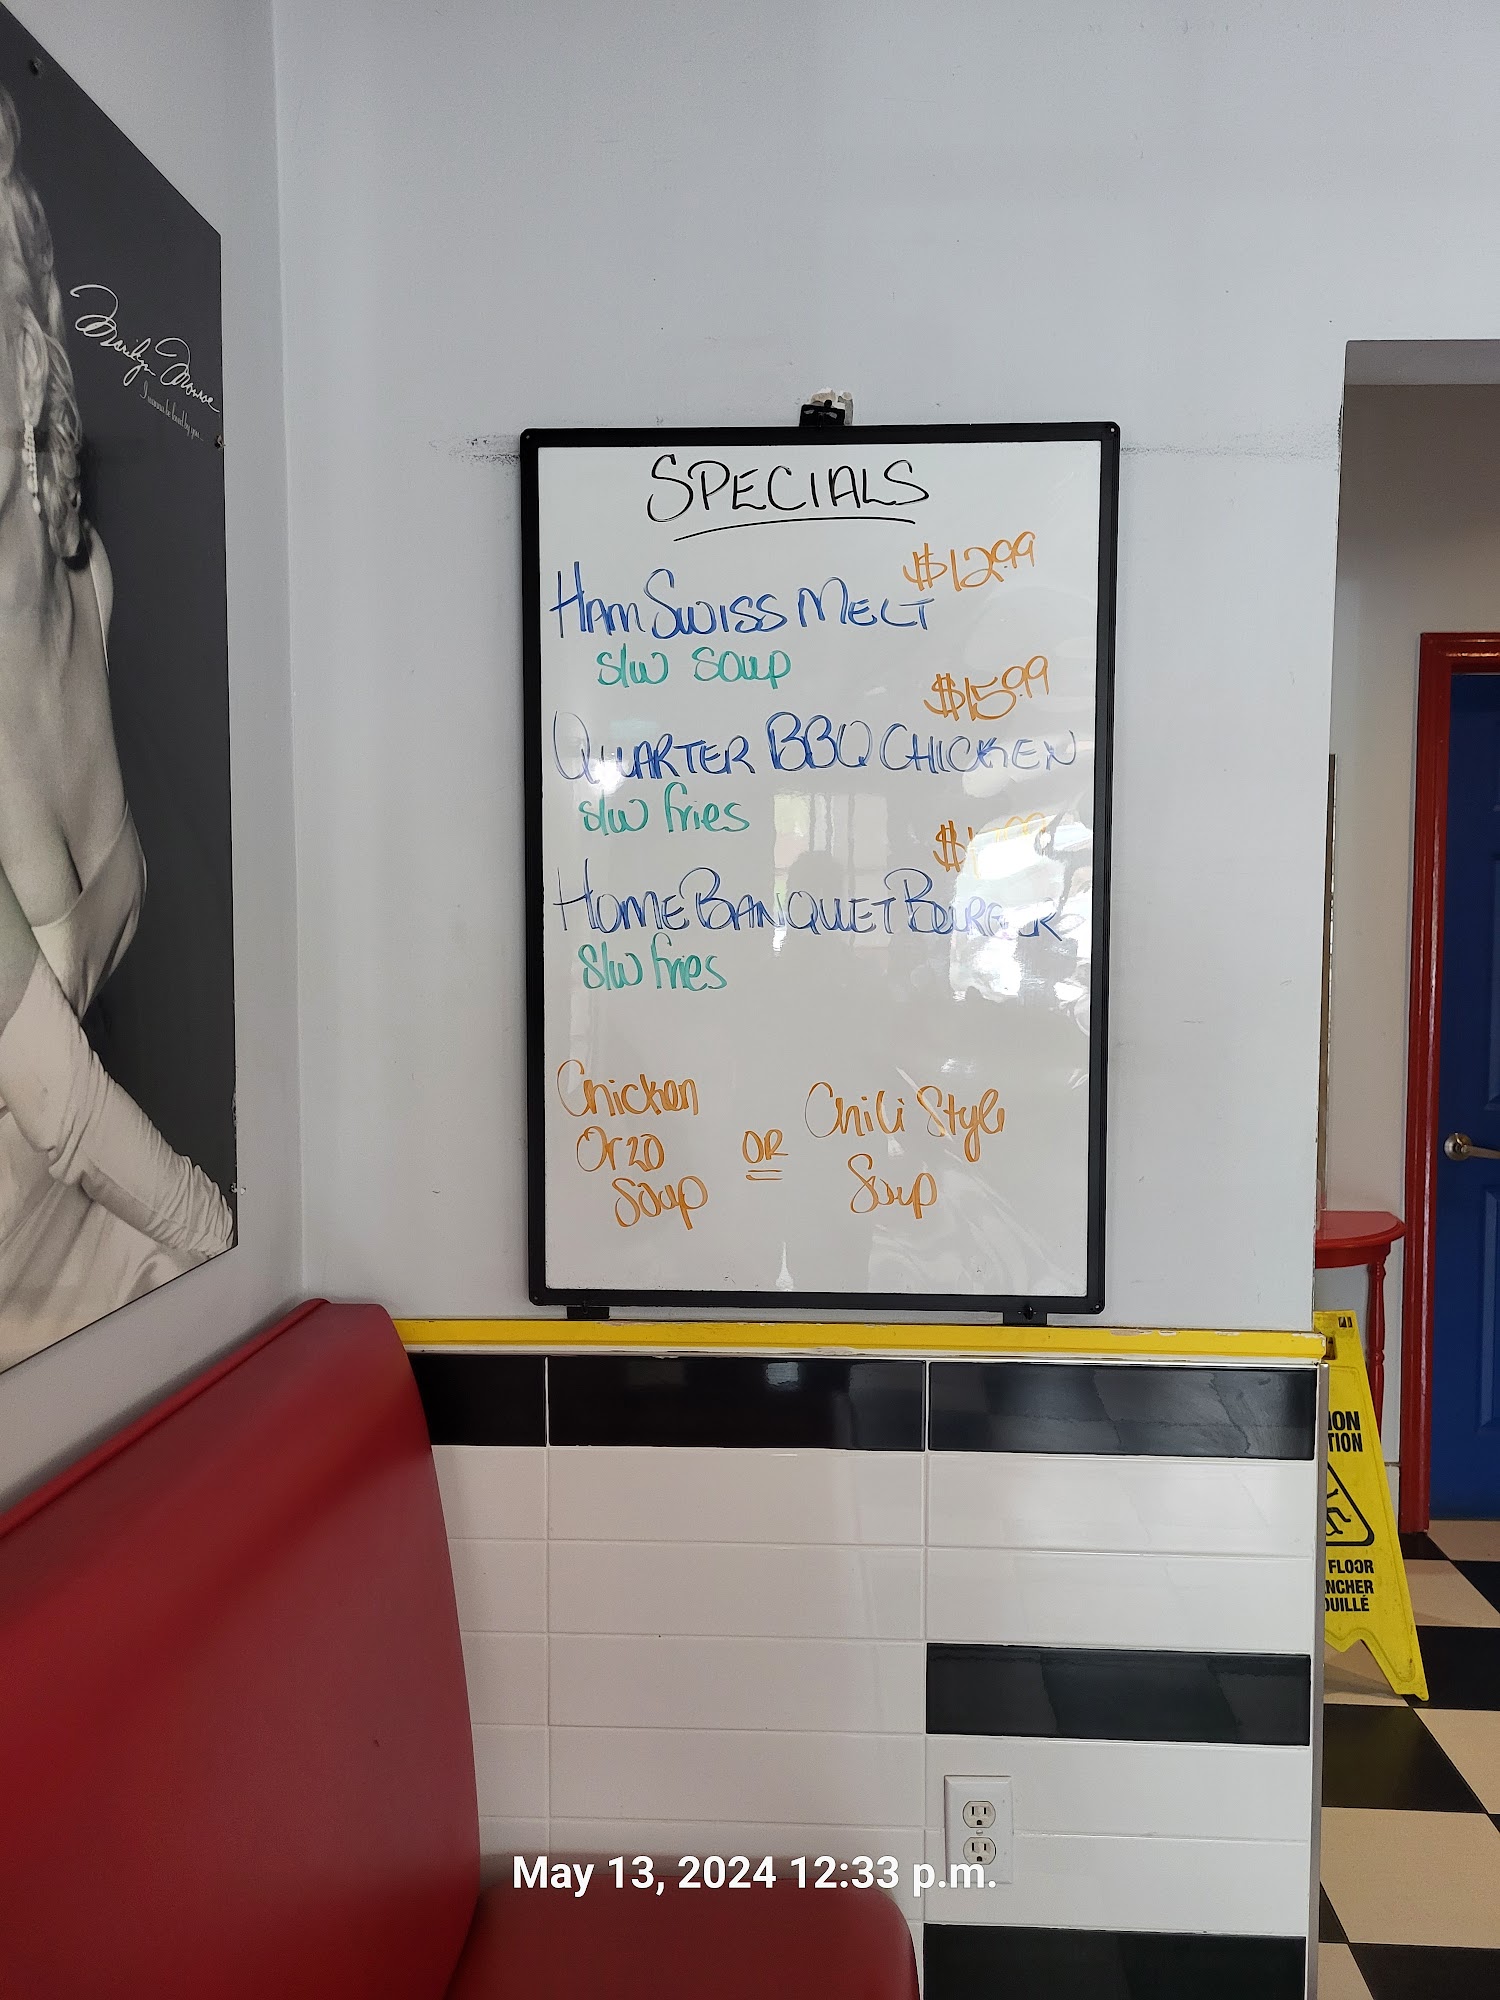 Marilyn Monroe
I wanna be loved by you...
SPECIALS
$12.99
HAM SWISS MELT
s/w soup
$15.99
QUARTER BBQ CHICKEN
s/w fries
HOME BANQUET BURGER
s/w fries
Chicken
Orzo
Soup
OR
Chili Style
Soup
FLOOR
May 13, 2024 12:33 p.m.